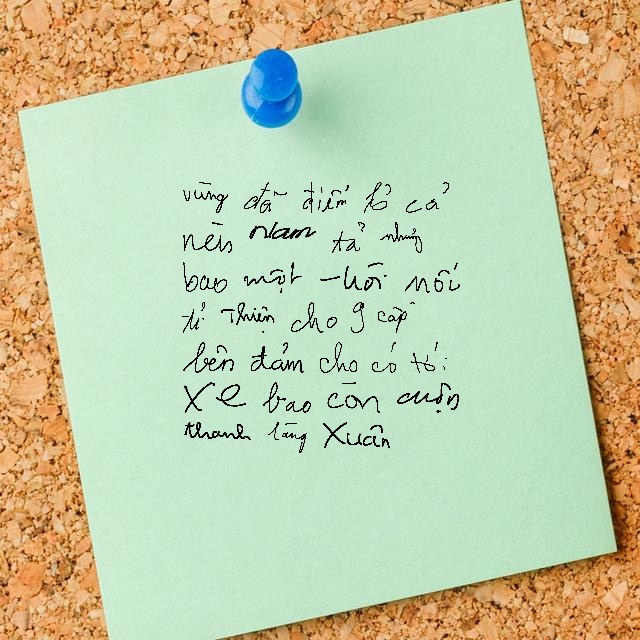 vùng đã điểm bỏ cả
nên nam tả những
bao một hồi nối
tỉ Thiện cho 9 cặp
bên đảm cho có tố:
xe bao còn cuộn
thanh lãng Xuân